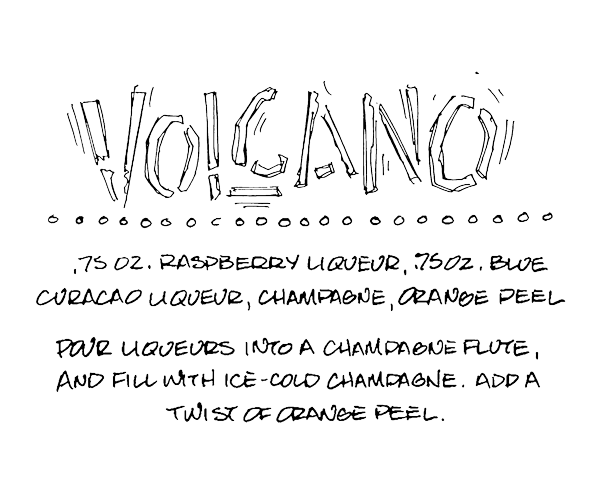 VOLCANO
.75 OZ. RASPBERRY LIQUEUR, .75 OZ. BLUE
CURACAO LIQUEUR, CHAMPAGNE, ORANGE PEEL
POUR LIQUEURS INTO A CHAMPAGNE FLUTE,
AND FILL WITH ICE-COLD CHAMPAGNE. ADD A
TWIST OF ORANGE PEEL.